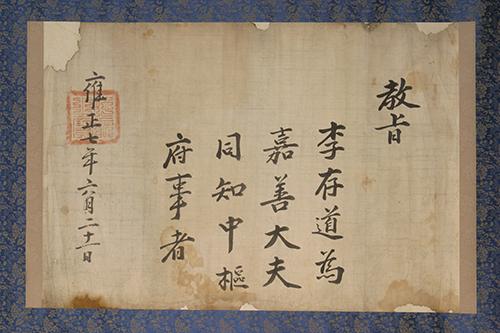 敎旨
李存道為
嘉善大夫
同知中樞
府事者
雍正七年六月二十一日